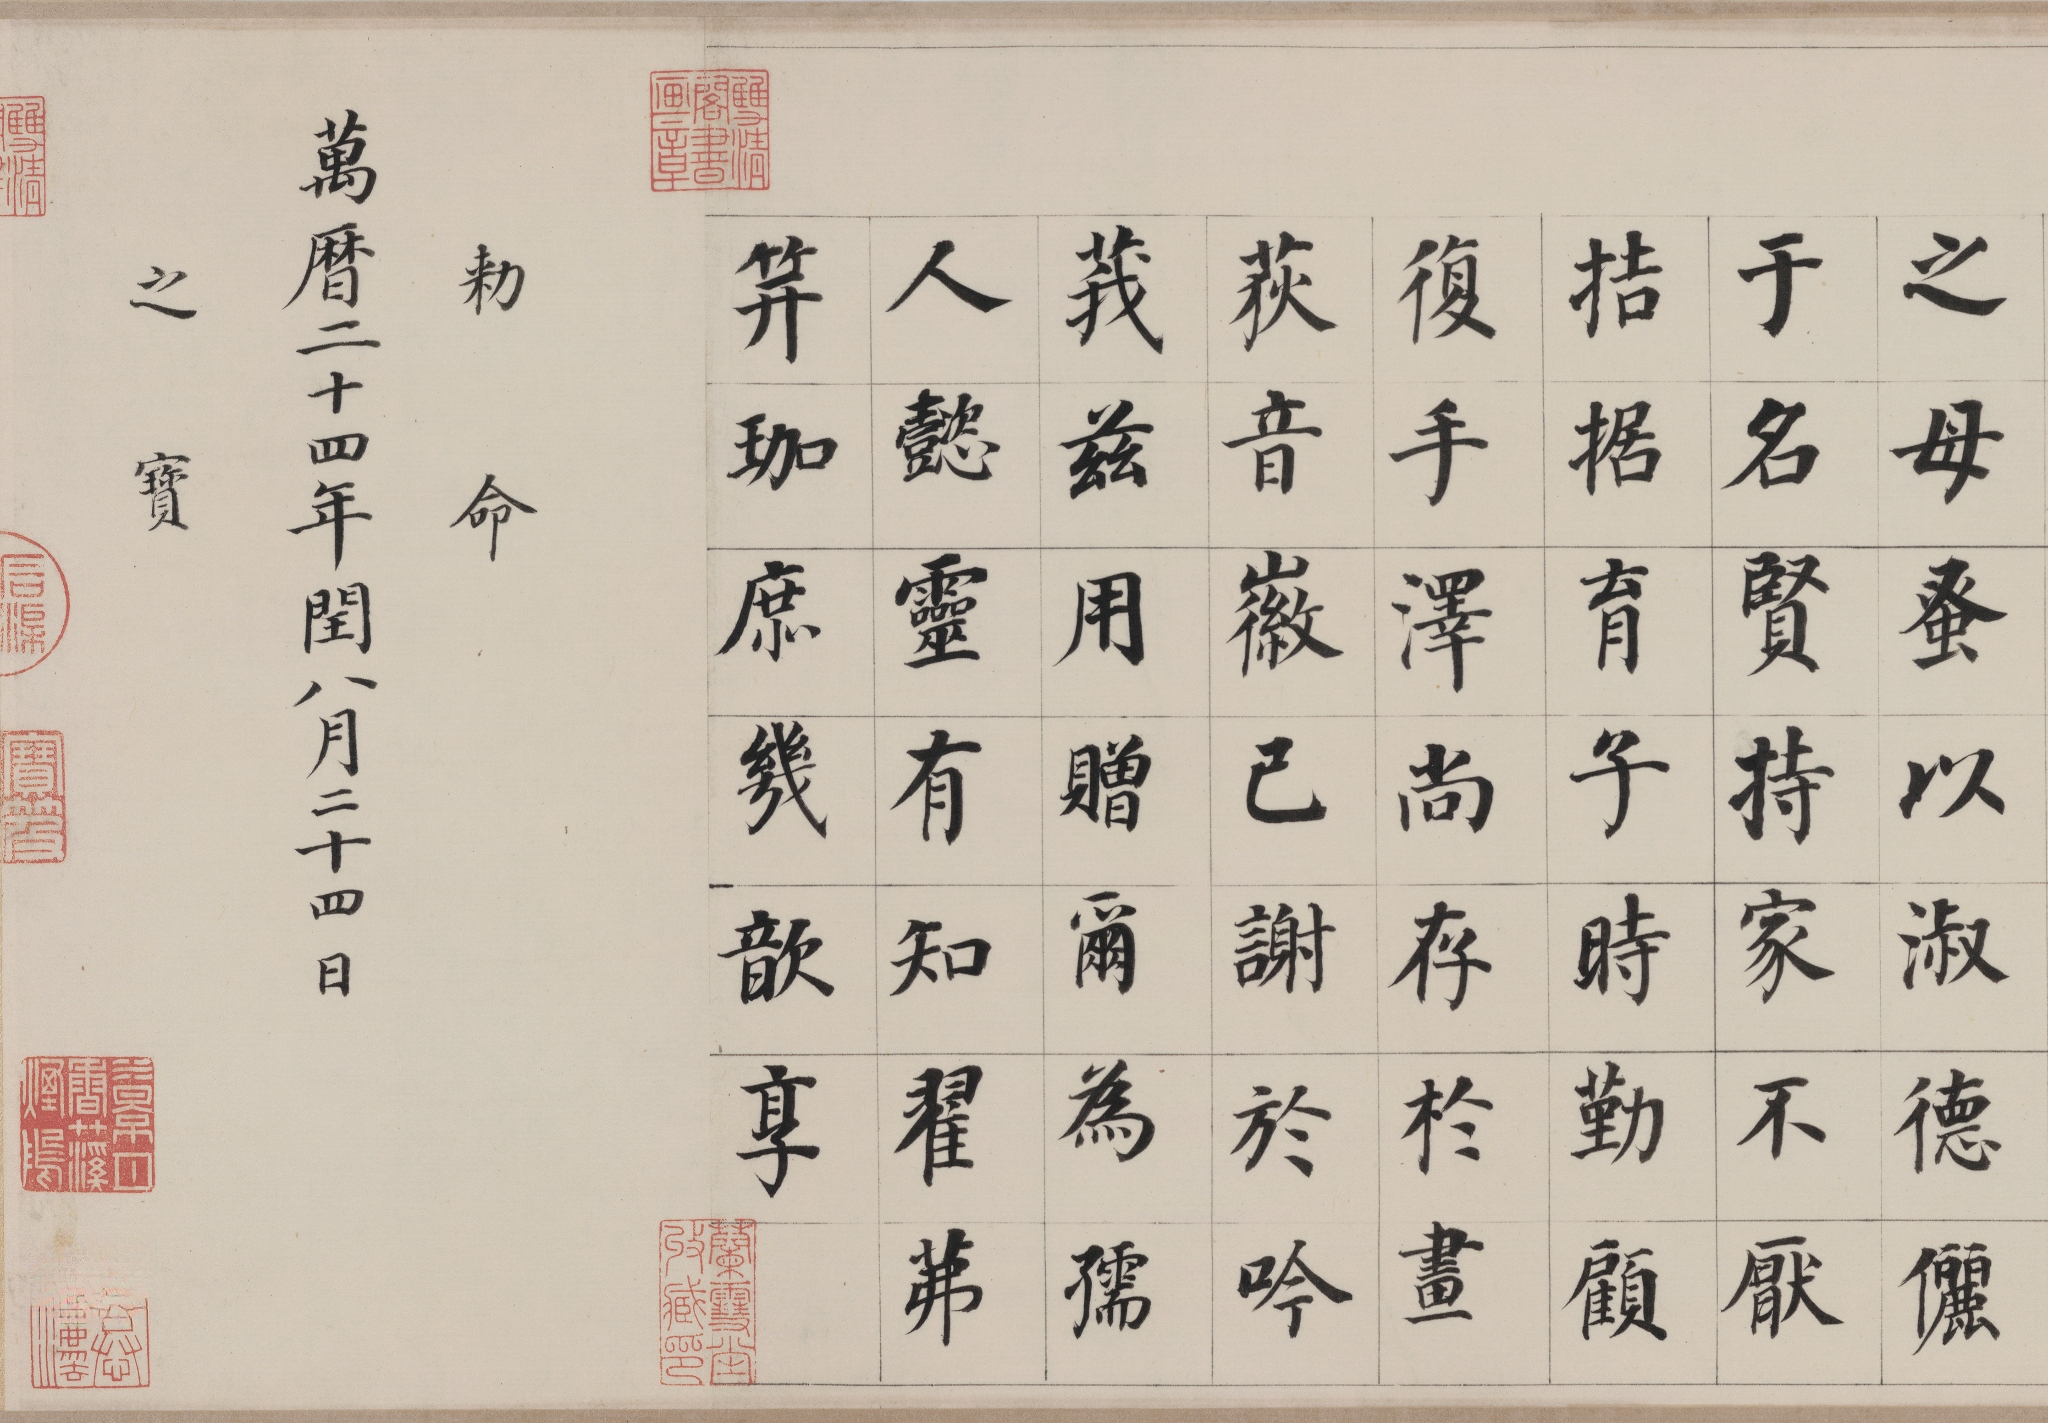 之母蚤以淑德儷
于名賢持家不厭
拮据育子時勤顧
復手澤尚存於畫
荻音徽已謝於吟
莪茲用贈爾為孺
人懿靈有知翟茀
笄珈庶幾歆享
勑命
萬曆二十四年閏八月二十四日
之寶
雙清閣書画之章
蘭雪堂收藏印